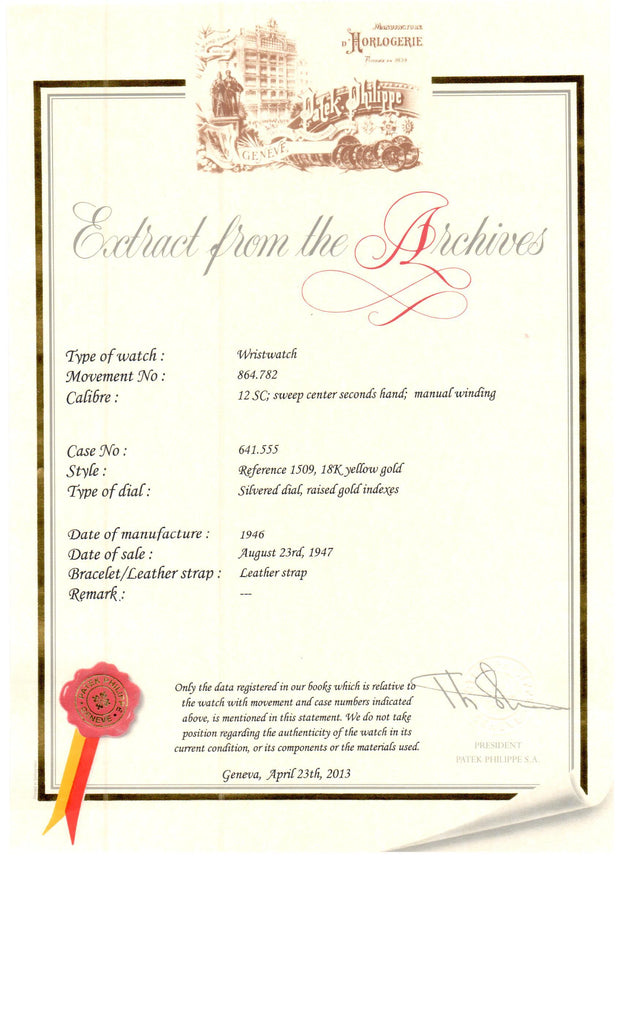 Manufacture
D'HORLOGERIE
Fondée en 1839
Patek Philippe
GENÈVE
Extract from the Archives
Type of watch : Wristwatch
Movement No : 864.782
Calibre : 12 SC; sweep center seconds hand; manual winding
Case No : 641.555
Style : Reference 1509, 18K yellow gold
Type of dial : Silvered dial, raised gold indexes
Date of manufacture : 1946
Date of sale : August 23rd, 1947
Bracelet/Leather strap : Leather strap
Remark : ---
Only the data registered in our books which is relative to
the watch with movement and case numbers indicated
above, is mentioned in this statement. We do not take
position regarding the authenticity of the watch in its
current condition, or its components or the materials used.
Geneva, April 23th, 2013
PATEK PHILIPPE
GENEVE
PRESIDENT
PATEK PHILIPPE S.A.